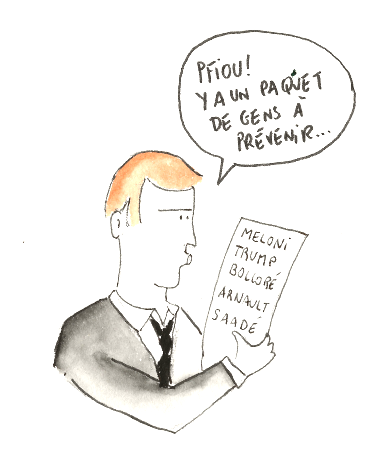 PFIOU!
Y A UN PAQUET
DE GENS À
PRÉVENIR...
MELONI
TRUMP
BOLLORÉ
ARNAULT
SAADÉ